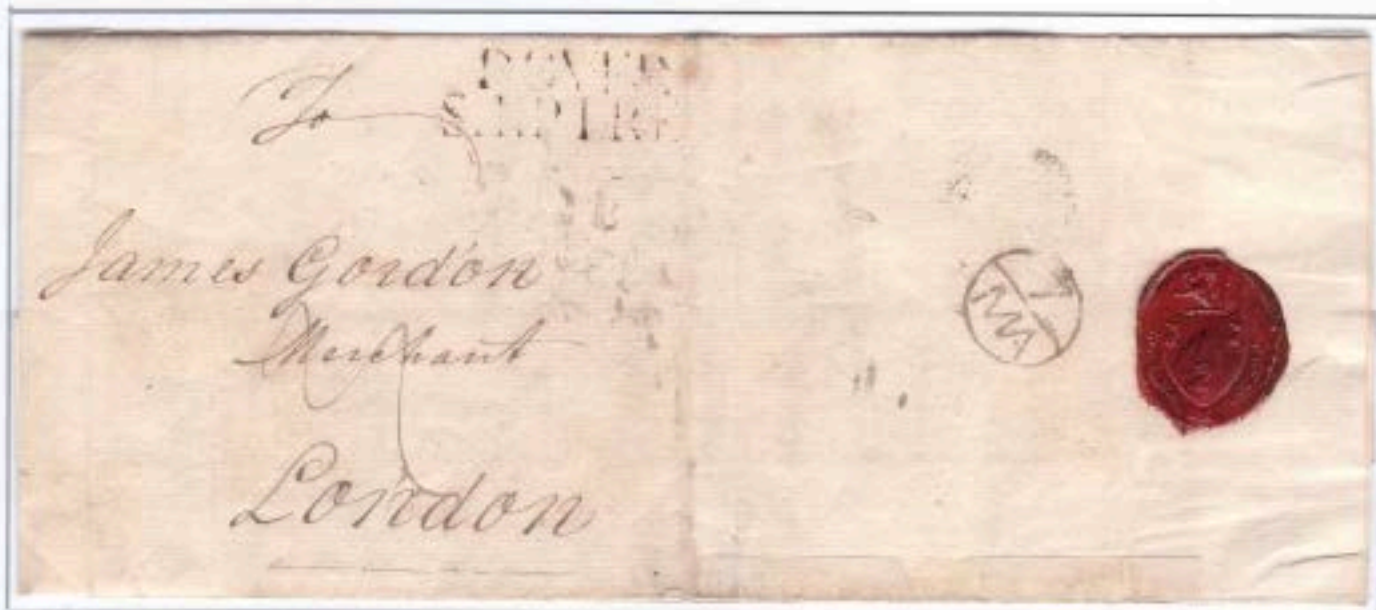 To
DOVER
SHIP LRE
James Gordon
Merchant
London